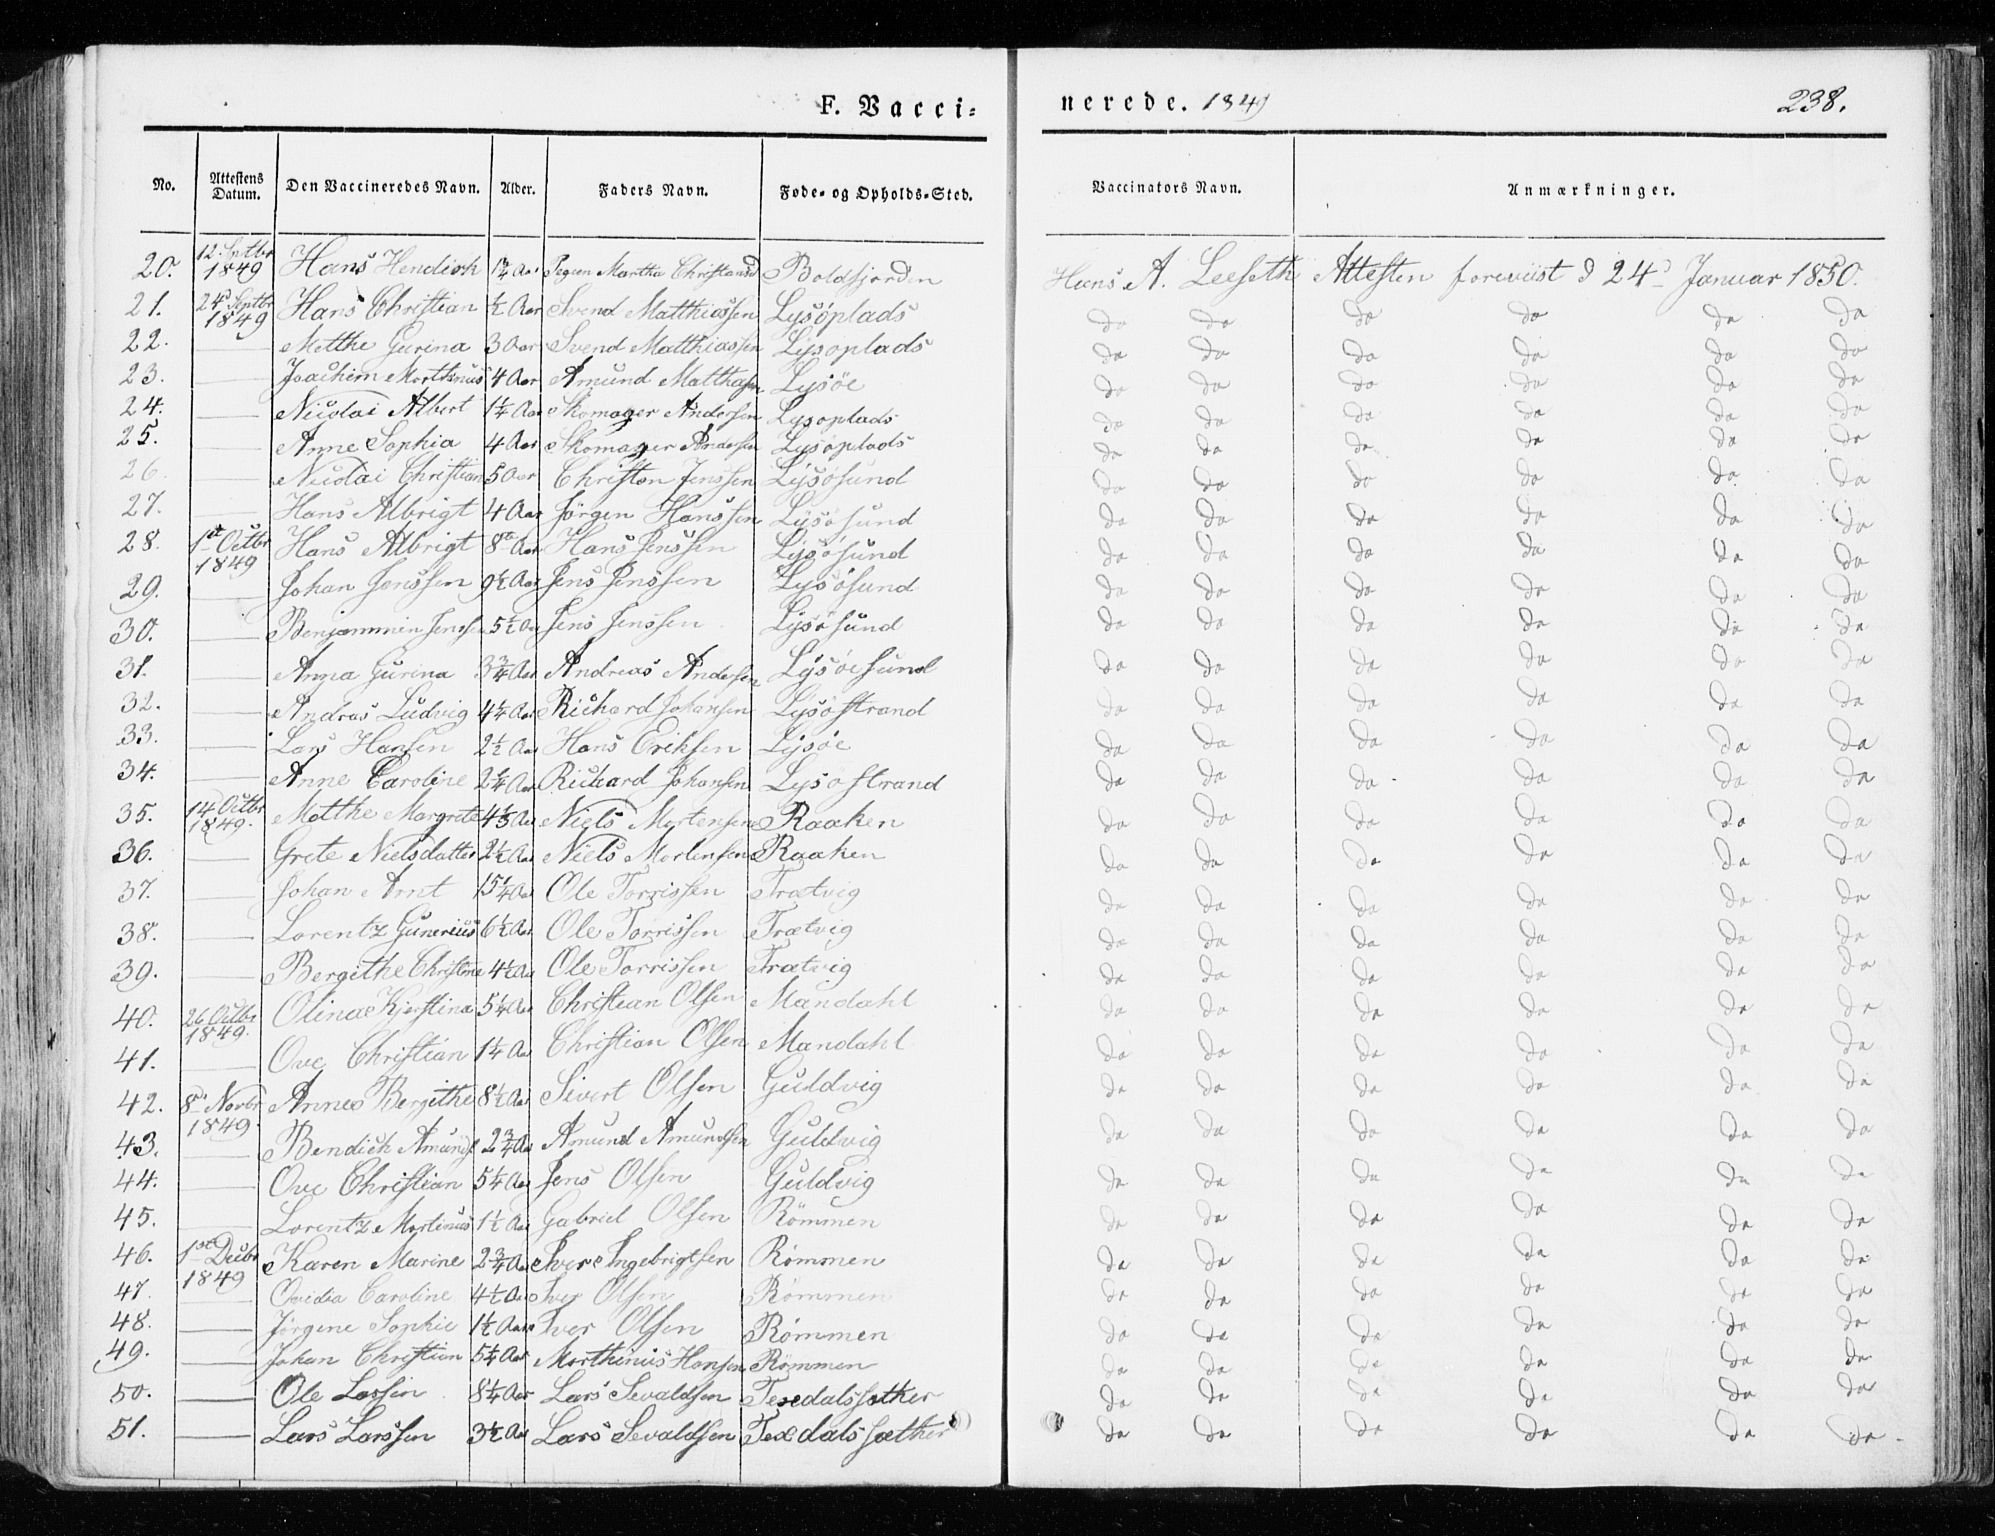 F. Vacci=
nerede. 1849
238.
No. Attestens Datum. Den Vaccineredes Navn. Alder. Faders Navn. Føde- og Opholds-Sted. Vaccinators Navn. Anmærkninger.
20. 12. Septbr 1849 Hans Hendich 1¾ Aar Pegun Martha Christiansd Boldfjorden Hans A. Leeseth Attesten foreviist d 24d Januar 1850.
21. 24d Septbr 1849 Hans Christian ½ Aar Svend Matthiassen Lysöplads do do do do do do
22. — Metthe Gurina 3 Aar Svend Matthiassen Lysoplads do do do do do do
23. — Joachim Morthinus 4 Aar Amund Matthasen Lysöe do do do do do do
24. — Nicolai Albert 1¼ Aar Skomager Andersen Lysoplads do do do do do do
25. — Anne Sophia 4 Aar Skomager Andersen Lysöplads do do do do do do
26. — Nicolai Christian 5 Aar Christen Jenssen Lysösund do do do do do do
27. — Hans Albrigt 4 Aar Jörgen Hanssen Lysösund do do do do do do
28. 1st Octbr 1849 Hans Albrigt 8 Aar Hans Jenssen Lysösund do do do do do do
29. — Johan Jenssen 9½ Aar Jens Jenssen Lysösund do do do do do do
30. — Benjammin Jenssen 5½ Aar Jens Jenssen Lysösund do do do do do do
31. — Anna Gurina 3¾ Aar Andreas Andersen Lysöesund do do do do do do
32. — Andras Ludvig 4¼ Aar Richard Johansen Lysöstrand do do do do do do
33. — Lars Hansen 2½ Aar Hans Eriksen Lysöe do do do do do do
34. — Anne Caroline 2¼ Aar Richard Johansen Lysostrand do do do do do do
35. 14 Octbr 1849. Metthe Margrete 4⅓ Aar Niels Mortensen Raaken do do do do do do
36. — Grete Nielsdatter 2½ Aar Niels Mortensen Raaken do do do do do do
37. — Johan Arnt 15¼ Aar Ole Torrissen Trætvig do do do do do do
38. — Lorentz Gunerius 6½ Aar Ole Torrissen Trætvig do do do do do do
39. — Bergithe Christine 4½ Aar Ole Torrissen Trætvig do do do do do do
40. 26 Octbr 1849. Olina Kjerstina 5¼ Aar Christian Olsen Mandahl do do do do do do
41. — Ove Christian 1¼ Aar Christian Olsen Mandahl do do do do do do
42. 8d Novbr 1849. Anne Bergithe 8½ Aar Sivert Olsen Guldvig do do do do do do
43. — Bendich Amunds 2¾ Aar Amund Amundsen Guldvig do do do do do do
44. — Ove Christian 5¼ Aar Jens Olsen Guldvig do do do do do do
45. — Lorentz Martinus 1½ Aar Gabriel Olsen Römmen do do do do do do
46. 1ste Decbr 1849 Karen Marine 2¾ Aar Iver Ingebrigtsen Römmen do do do do do do
47. — Ovidia Caroline 4½ Aar Iver Olsen Römmen do do do do do do
48. — Jörgine Sophie 1½ Aar Iver Olsen Römmen do do do do do do
49. — Johan Christian 5¼ Aar Morthinus Hansen Römmen do do do do do do
50. — Ole Larsen 8¼ Aar Lars Sevaldsen Texedalssæther do do do do do do
51. — Lars Larssen 3½ Aar Lars Sevaldsen Texdalssæther do do do do do do